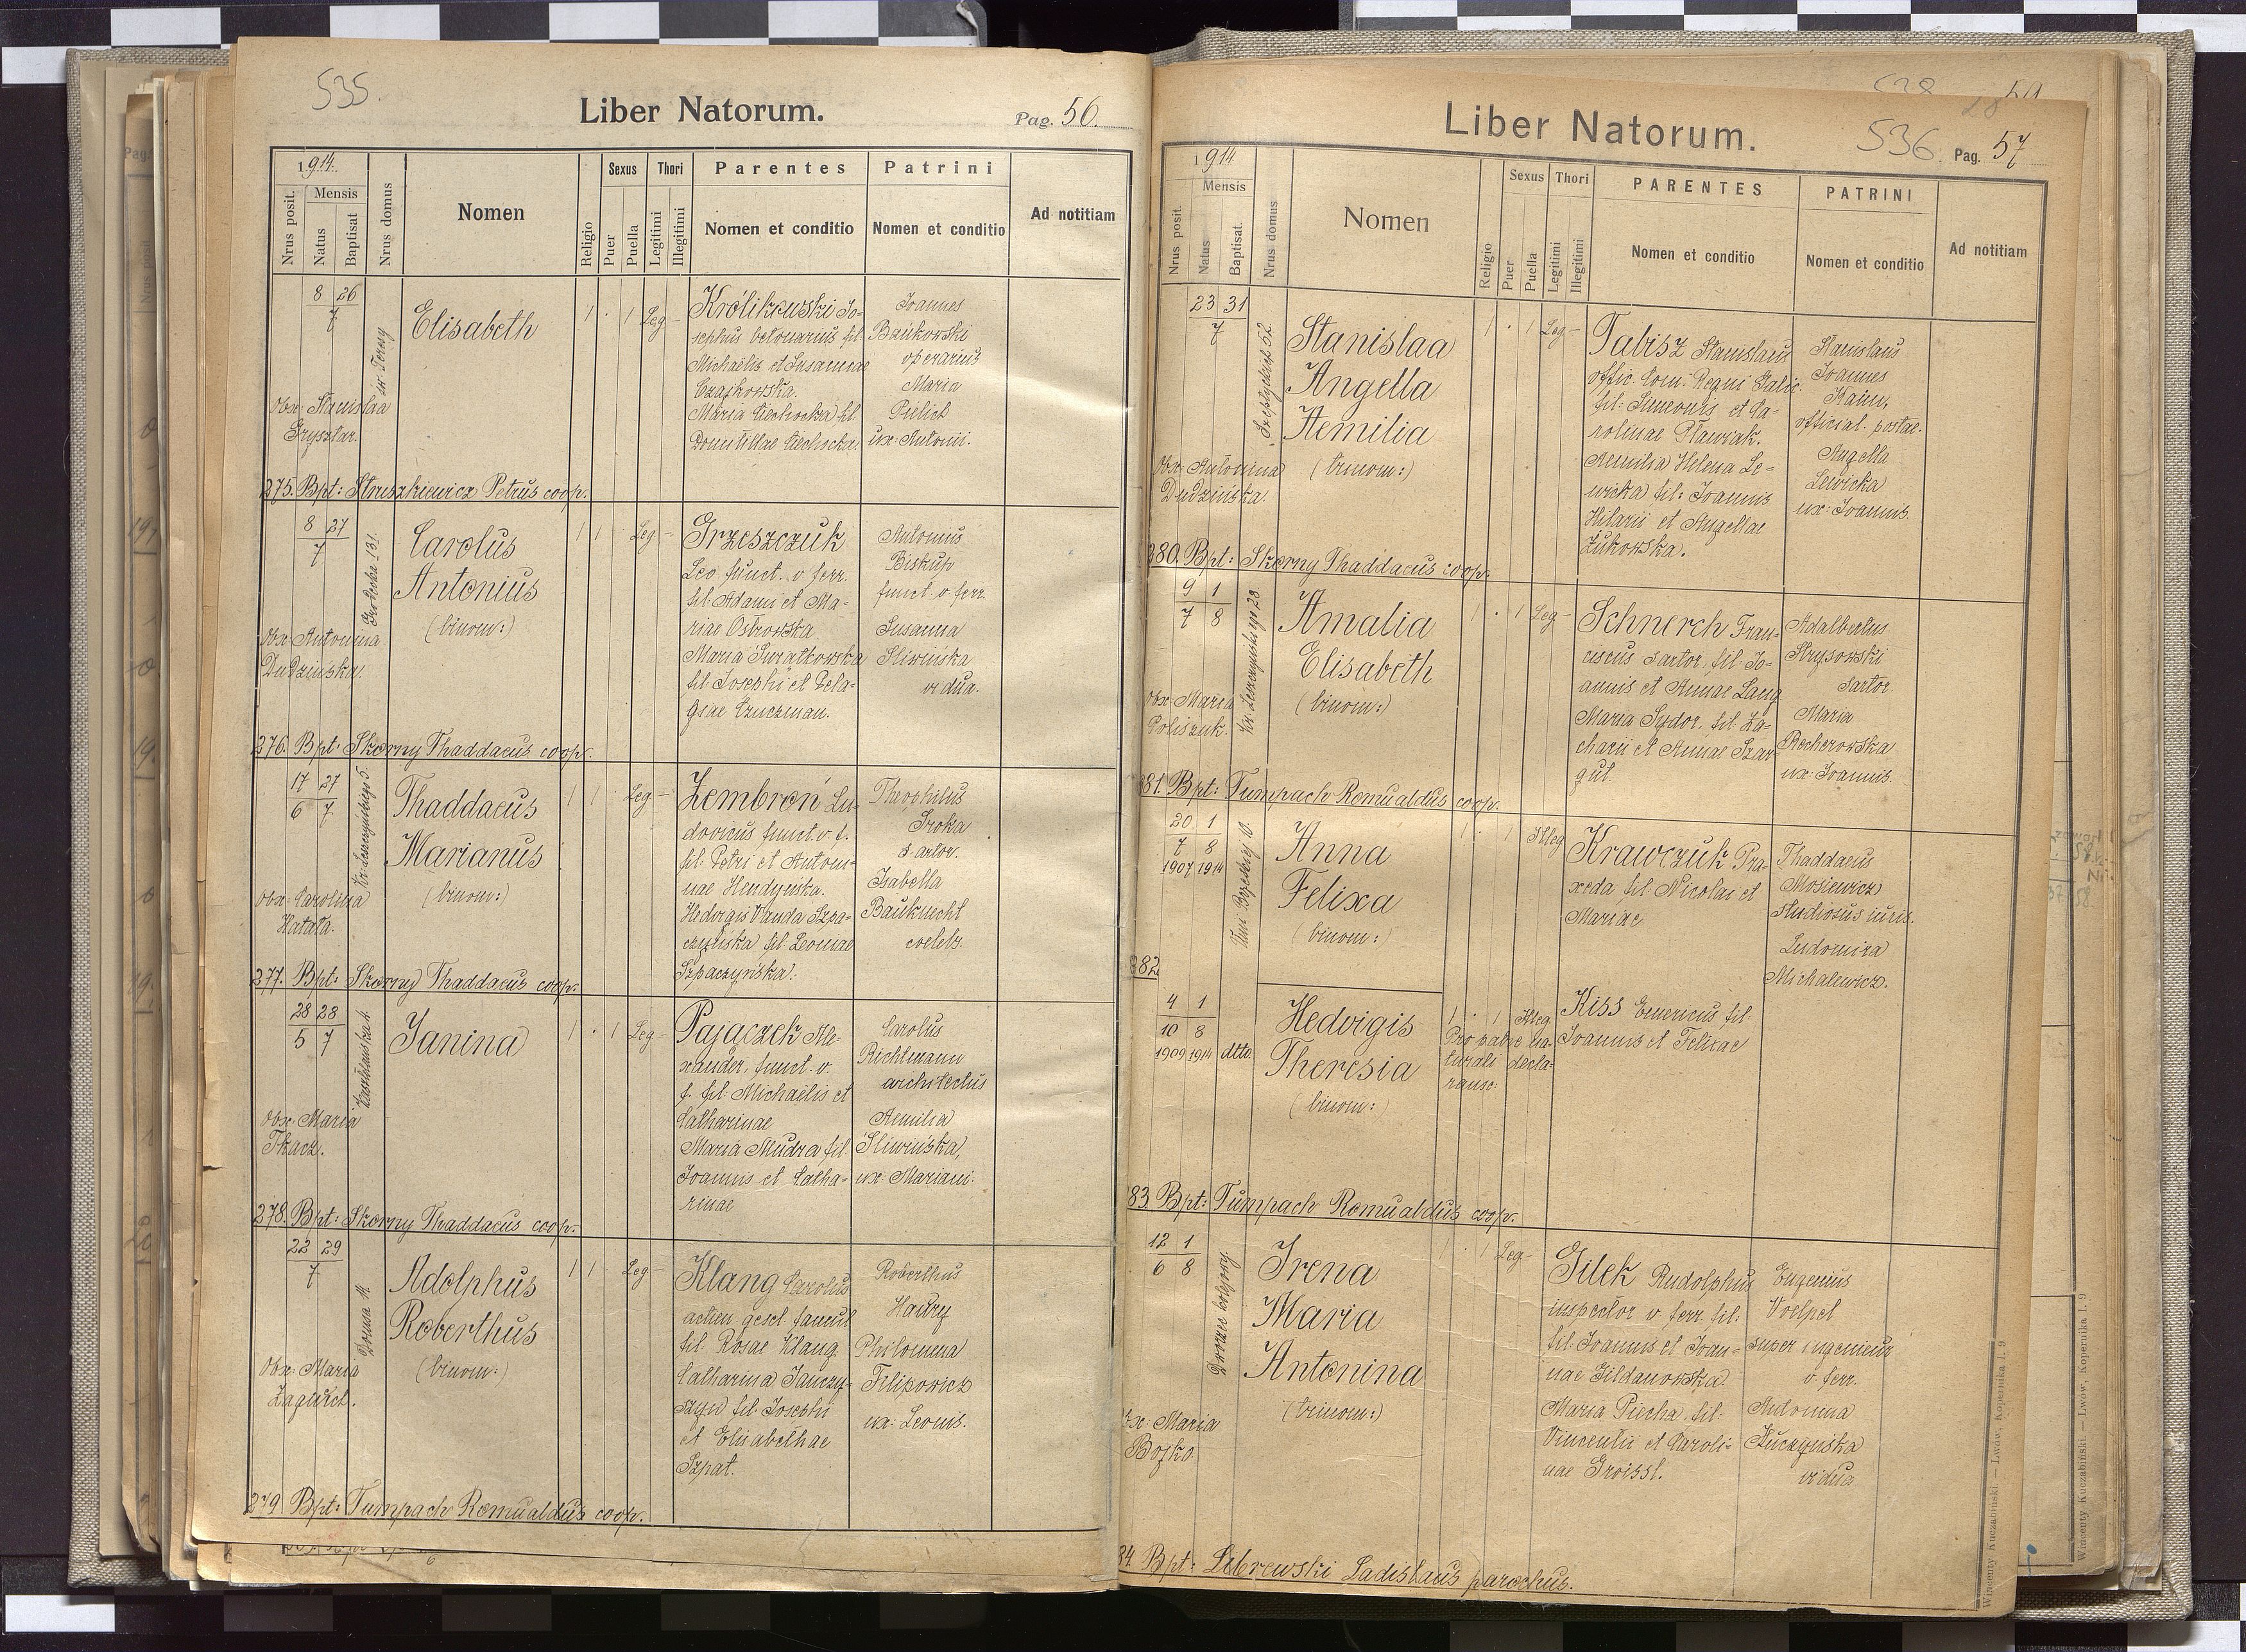 535.
Liber Natorum.
Pag. 56.
1914.
Nrus posit.
Mensis
Natus
Baptisat
Nrus domus
Nomen
Religio
Sexus
Puer
Puella
Thori
Legitimi
Illegitimi
Parentes
Nomen et conditio
Patrini
Nomen et conditio
Ad notitiam
8 26
7
św. Teresy
Obx: Stanislaa
Grysztar.
Elisabeth
1 · 1 Leg -
Królikowski Jo-
sephus betonarius fil.
Michaëlis et Susannae
Czajkowska.
Maria Ciechocka fil.
Domitillae Ciechocka.
Joannes
Bańkowski
operarius
Maria
Pielich
ux: Antonii.
275. Bpt: Struszkiewicz Petrus coop.
8 27
7
Grodecka 131.
Obx: Antonina
Dudzińska.
Carolus
Antonius
(binom:)
1 1 · Leg -
Grzeszczuk
Leo funct. v. ferr.
fil. Adami et Ma-
riae Ostrowska
Maria Swiatkowska
fil. Josephi et Pela-
giae Czuczman.
Antonius
Biskup
funct. v. ferr.
Susanna
Sliwińska
vidua.
276. Bpt: Skorny Thaddaeus coop.
17 27
6 7
Kr. Leszczyńskiego 5.
Obx: Carolina
Hatała.
Thaddaeus
Marianus
(binom:)
1 1 · Leg -
Zembroń Lu-
dovicus funct. v. f.
fil. Petri et Antoni-
nae Hendyńska.
Hedvigis Vanda Szpa-
czyńska, fil. Leoniae
Szpaczyńska.
Theophilus
Sroka
sartor.
Isabella
Bauknecht
coelebs.
277. Bpt: Skorny Thaddaeus coop.
28 28
5 7
Obx: Maria
Tkacz.
Janina
1 · 1 Leg -
Pajączek Ale-
xander, funct. v.
f. fil. Michaëlis et
Catharinae
Maria Mudra fil.
Joannis et Catha-
rinae
Carolus
Richtmann
architectus
Aemilia
Sliwińska,
ux: Mariani.
278. Bpt: Skorny Thaddaeus coop.
22 29
7
Obx: Maria
Adolphus
Roberthus
(binom:)
1 1 · Leg -
Klang Carolus
actien. gesel. famul.
fil. Rosae Klang.
Catharina Janczy-
szyn fil. Josephi
et Elisabethae
Szpat.
Roberthus
Haury
Philomena
Filipowicz
ux: Leonis.
279. Bpt: Tumpach Romualdus coop.
Liber Natorum.
536
Pag. 57
1914
Nrus posit.
Mensis
Natus
Baptisat.
Nrus domus
Nomen
Religio
Sexus
Puer
Puella
Thori
Legitimi
Illegitimi
PARENTES
Nomen et conditio
PATRINI
Nomen et conditio
Ad notitiam
23 31
7
Szeptyckich 52.
Obx: Antonina
Dudzińska.
Stanislaa
Angella
Aemilia
(trinom:)
1 · 1 Leg -
Tabisz Stanislaus
offic. Com. Regni Galic.
fil. Simeonis et Ca-
rolinae Pławiak.
Aemilia Helena Le-
wicka fil: Joannis
Hilarii et Angellae
Żukowska.
Stanislaus
Joannes
official. postae.
Angella
Lewicka
ux: Joannis.
280. Bpt: Skorny Thaddaeus coop.
9 1
7 8
Kr. Leszczyńskiego 28.
Obx: Maria
Poliszuk.
Amalia
Elisabeth
(binom:)
1 · 1 Leg -
Schnerch Fran-
ciscus sartor, fil. Jo-
annis et Annae Lang
Maria Sydor, fil. Za-
charii et Annae Szar-
gut.
Adalbertus
Strysowski
sartor.
Maria
Rocherowska
ux: Joannis.
281. Bpt: Tumpach Romualdus coop.
20 1
7 8
1907 1914
Unii Brzeskiej 10.
Anna
Felixa
(binom:)
1 · 1 Illeg
Krawczuk Pra-
xeda fil. Nicolai et
Mariae
Thaddaeus
Mosiewicz
studiosus iuris.
Ludomira
Michalewicz.
282
4 1
10 8
1909 1914 dtto.
Hedvigis
Theresia
(binom:)
1 · 1 Illeg
Pro patre na-
turali decla-
rans:
Kiss Emericus fil.
Joannis et Felixae
83. Bpt: Tumpach Romualdus coop.
12 1
6 8
Dworzec kolejowy.
Obx: Maria
Bojko.
Irena
Maria
Antonina
(trinom:)
1 · 1 Leg -
Gilek Rudolphus
inspector v. ferr. fil.
fil. Joannis et Joan-
nae Gildanowska.
Maria Piecha fil:
Vincentii et Caroli-
nae Groissl.
Eugenius
Voelpel
super ingenieur
v. ferr.
Antonina
Kuczyńska
vidua
84. Bpt: Librewski Ladislaus parochus.
Wincenty Kuczabiński. — Lwów, Kopernika l. 9
Wincenty Kuczabiński. — Lwów, Kopernika l. 9